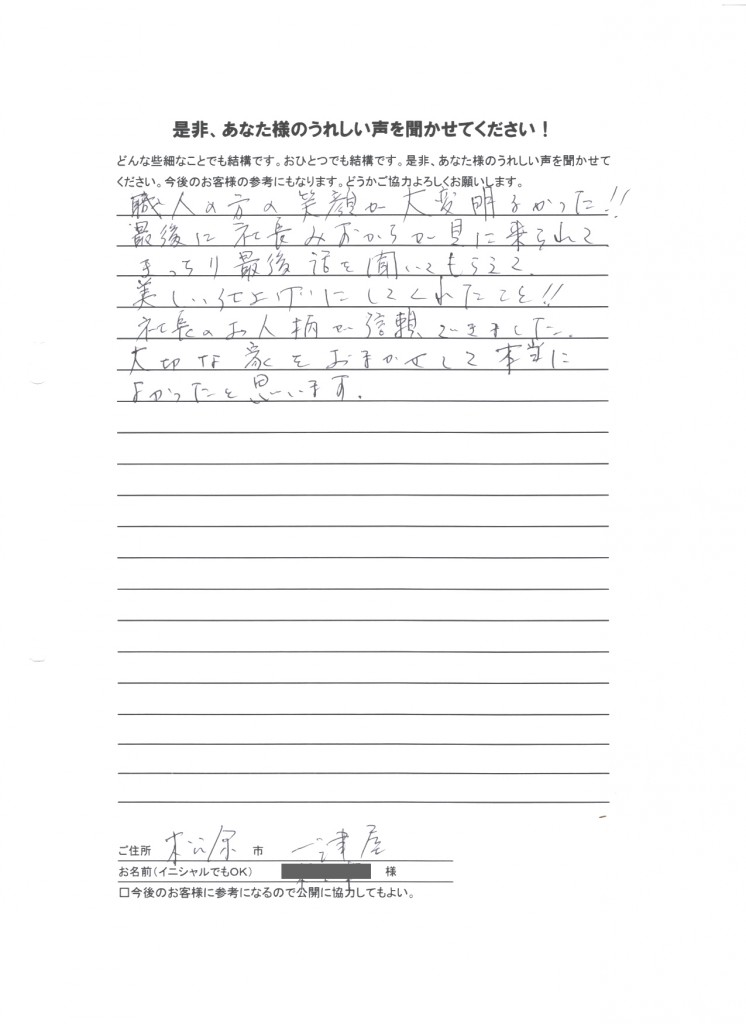 是非、あなた様のうれしい声を聞かせてください！
どんな些細なことでも結構です。おひとつでも結構です。是非、あなた様のうれしい声を聞かせて
ください。今後のお客様の参考にもなります。どうかご協力よろしくお願いします。
職人の方の笑顔が大変明るかった!!
最後に社長みずからが見に来られて
きっちり最後話を聞いてもらえて、
美しい仕上げにしてくれたこと!!
社長のお人柄が信頼できました。
大切な家をおまかせして本当に
よかったと思います。
ご住所 松原 市 一津屋
お名前(イニシャルでもOK) 様
□今後のお客様に参考になるので公開に協力してもよい。